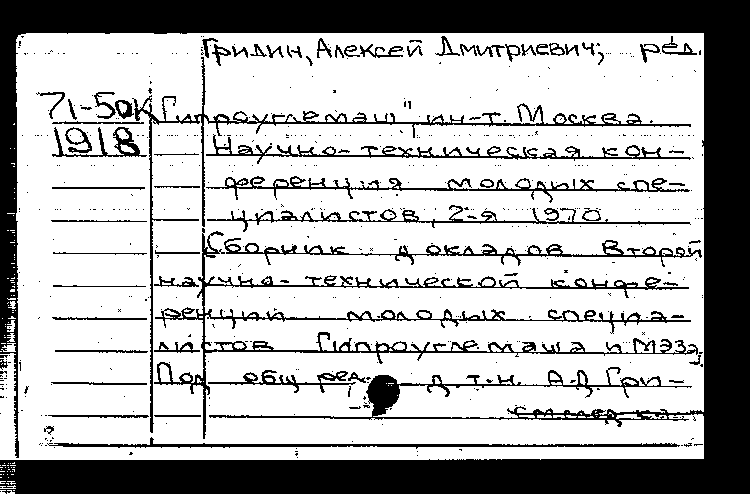 Гридин, Алексей Дмитриевич; ред.
71-50К "Гипроуглемаш", ин-т. Москва.
1918 Научно-техническая кон-
ференция молодых спе-
циалистов, 2-я 1970.
Сборник докладов второй
научно-технической конфе-
ренции молодых специа-
листов Гипроуглемаша и МЭЗа.
Под общ ред. д.т.н. А.Д. Гри-
см след к